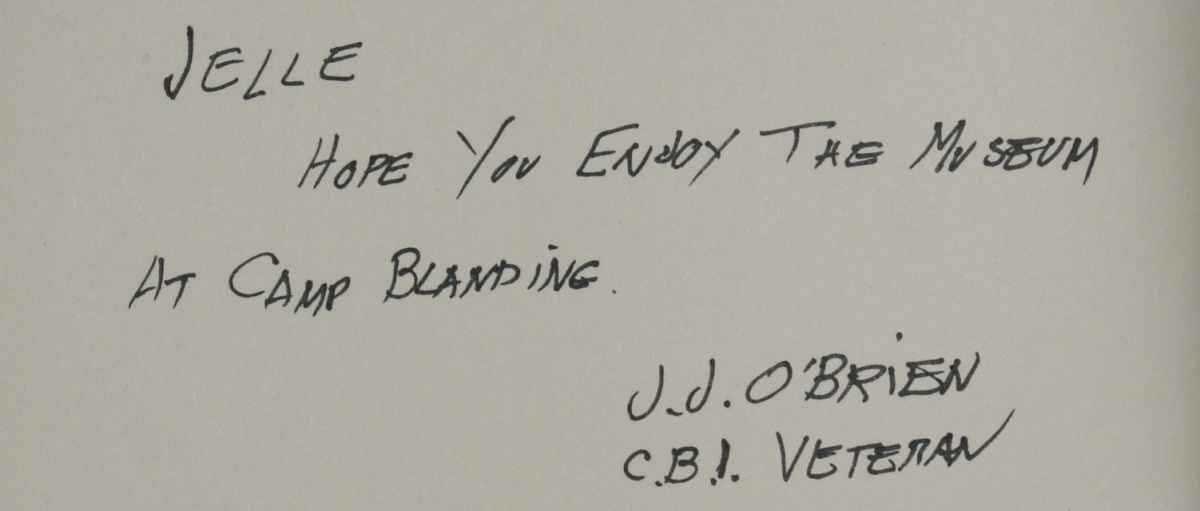 JELLE
HOPE YOU ENJOY THE MUSEUM
AT CAMP BLANDING.
J.J. O'BRIEN
C.B.I. VETERAN